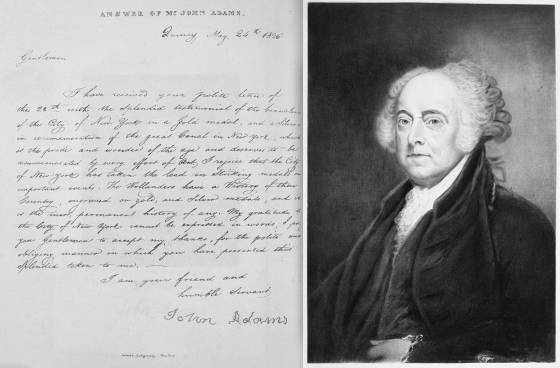 ANSWER OF Mr. JOHN ADAMS.
Quincy May 24th 1826
Gentlemen
I have received your polite letter of
the 22d with the splendid testimonial of the
of the City of New York in a Gold medal, and
in commemoration of the great Canal in New York, which
is the pride and wonder of the age and deserves to be
commemorated by every effort of Art, I rejoice that the City
of New York has taken the lead in Striking medals on
important events. The Hollanders have a History of their
Country, engraved on gold, and Silver medals, and it
is the most permanent history of any. My gratitude to
the City of New York cannot be expressed in words, I
you Gentlemen to accept my thanks, for the polite and
obliging manner in which you have presented this
Splendid token to me.
I am your friend and
humble servant
John Adams